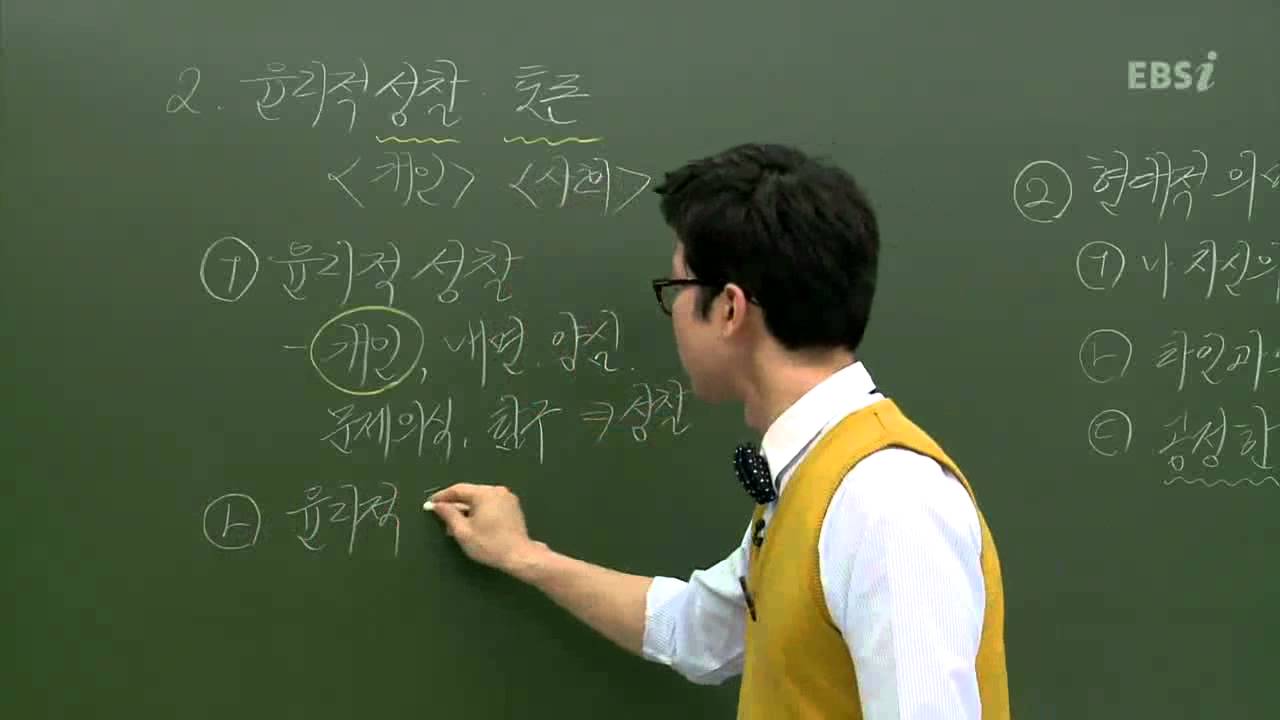 EBSi
2. 윤리적 성찰 · 토론
<개인> <사회>
㉠ 윤리적 성찰
- 개인, 내면. 양심.
문제의식, 탐구 ⇒ 성찰
㉡ 윤리적
② 현대적 의
㉠ 나 자신의
㉡ 타인과
㉢ 공성한